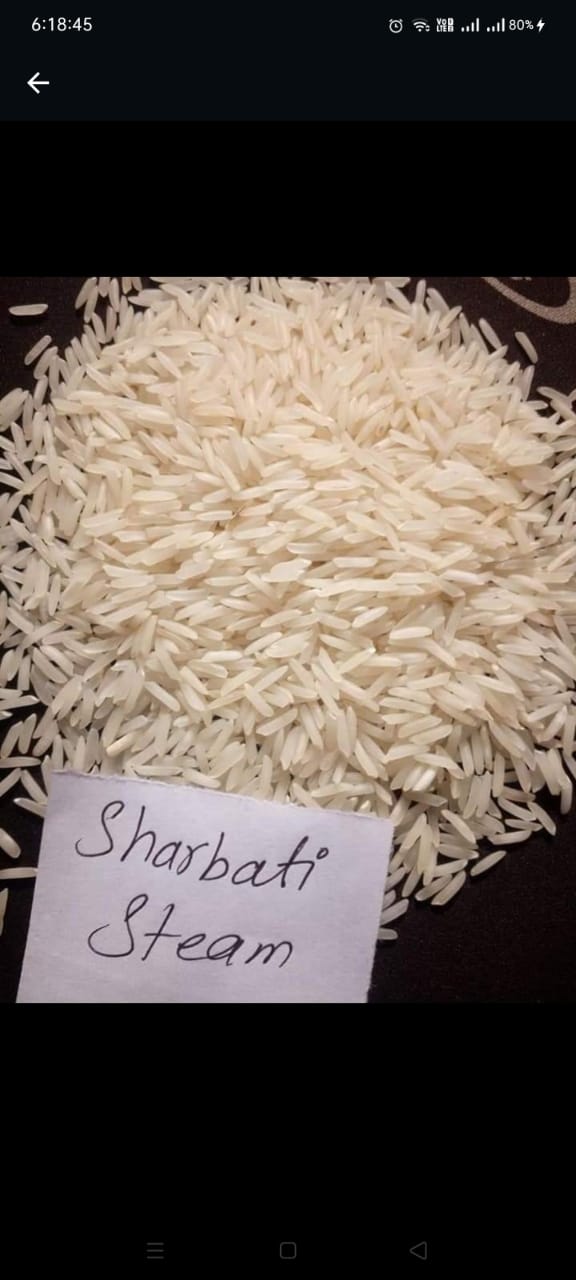 6:18:45
VoD LTE 80%
Sharbati
Steam